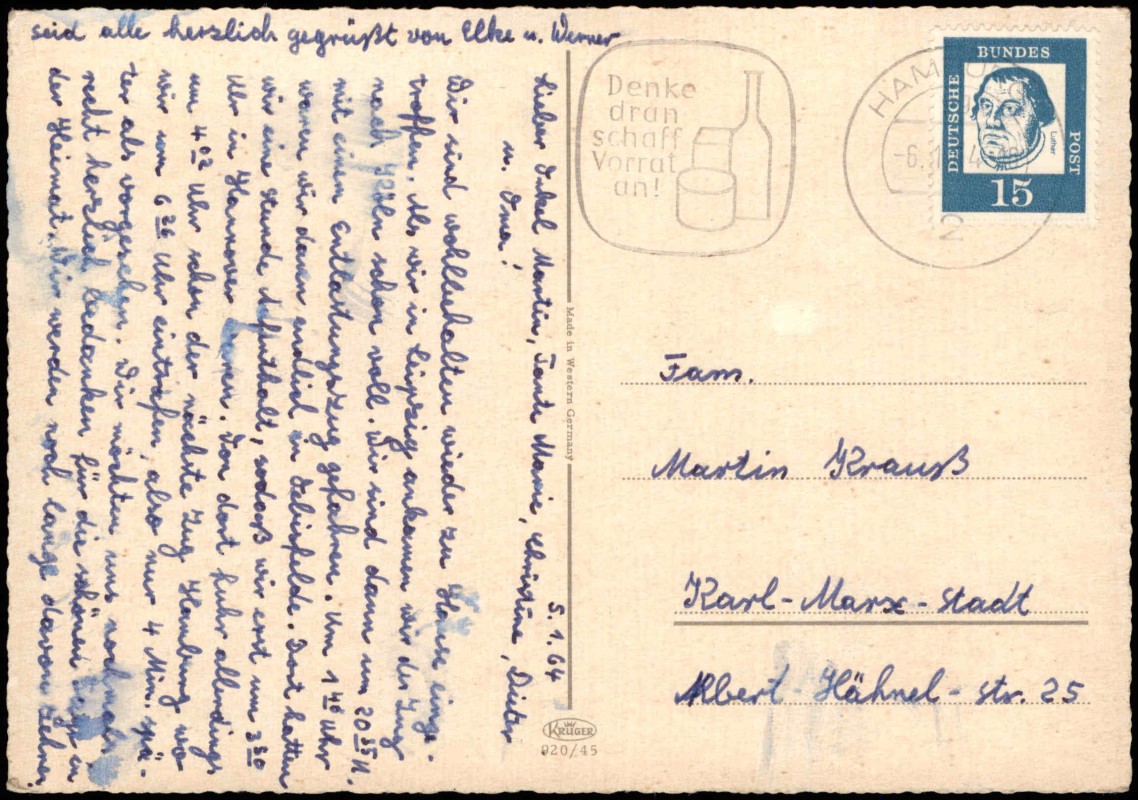 5. 1. 64
Lieber Onkel Martin, Tante Marie, Christine, Dieter
u. Oma!
Wir sind wohlbehalten wieder zu Hause einge-
troffen. Als wir in Leipzig ankamen wir der Zug
nach Köln schon voll. Wir sind dann um 20 35 U.
mit einen Entlastungszug gefahren. Um 1 40 Uhr
waren wir dann endlich in Oebisfelde. Dort hatten
wir eine Stunde Aufenthalt, sodaß wir erst um 3 30
Uhr in Hannover waren. Von dort fuhr allerdings
um 4 02 Uhr schon der nächste Zug Hamburg wo
wir um 6 26 Uhr eintrafen, also nur 4 Min. spä-
ter als vorgesehen. Wir möchten uns nochmals
recht herzlich bedanken für die schönen Tage in
der Heimat. Wir werden noch lange davon zehren
seid alle herzlich gegrüßt von Elke u. Werner
Made in Western Germany
KRÜGER
920/45
Denke
dran
schaff
Vorrat
an!
HAMBURG
-6.1.
2
DEUTSCHE
BUNDES
POST
Luther
15
Fam.
Martin Krauß
Karl-Marx-Stadt
Albert-Hähnel-Str. 25